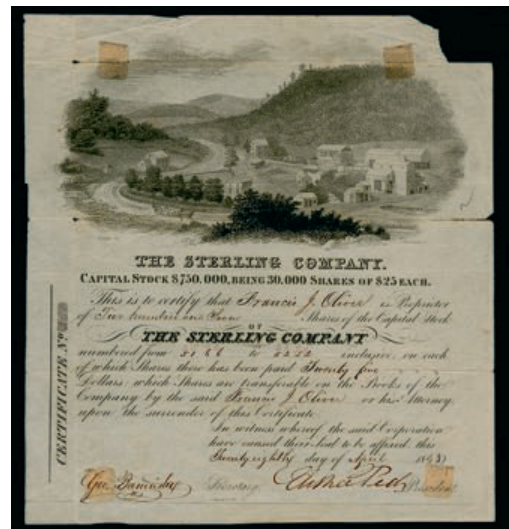 THE STERLING COMPANY.
CAPITAL STOCK $750,000, BEING 30,000 SHARES OF $25 EACH.
This is to certify that Francis J. Oliver is Proprietor
of Shares of the Capital Stock
OF
THE STERLING COMPANY
numbered from to inclusive, on each
of which Shares there has been paid Twenty five
Dollars, which Shares are transferable on the Books of the
Company by the said Francis J. Oliver or his Attorney
upon the surrender of this Certificate.
In witness whereof the said Corporation
have caused their Seal to be affixed this
Twenty eighth day of April
Secretary President
CERTIFICATE No